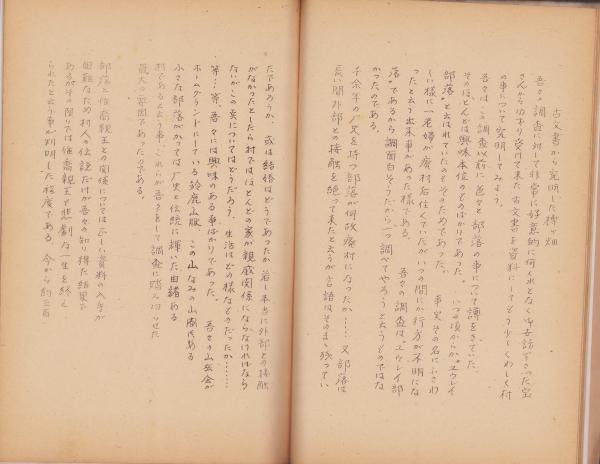 古文書から究明した榑ヶ畑
吾々の調査に対して非常に好意的に何くれとなく御世話下さった宝
さんから切より受けて来た古文書を資料にしてもう少しくわしく村
の事について究明してみよう。
吾々はこの調査以前に色々と部落の事について噂をきいていた。
そのほとんどは興味本位のものばかりであった。いつの頃からか"ユウレイ
部落"と云はれていたのもそのためであった。事実その名にふさわ
しい様に一老婦が廃村后住くていたがいつの間にか行方が不明にな
ったと云う出来事があった様である。吾々の調査は"ユウレイ部
落"であるから調面白そうだから一つ調べてやろうと云うものではな
かったのである。
千余年の歴史を持つ部落が何故廃村になったか……又部落は
長い間外部との接触を絶って来たと云うが言語はそのまゝ残ってい
たであろうか、或は結婚はどうであったか若し本当に外部との接触
がなかったとしたら村ではほとんどの家が親戚関係にならなければなら
ないがこの点についてはどうだろう、生活はどの様なものだったか……
等…等、吾々には興味のある事ばかりであった。吾々の山岳会が
ホームグランドにしている鈴鹿山脈、この山なみの山間にある
小さな部落がかつては歴史と伝統に輝いた由緒ある
村であると云う事、これらが吾々をして調査に踏み切らせた
最大の要因であったのである。
部落と惟喬親王との関係については正しい資料の入手が
困難なため村人の伝説だけが吾々の知り得た結果で
あるがその限りでは惟喬親王が悲劇な一生を終え
られたと云う事が判明した程度である。今から約三百